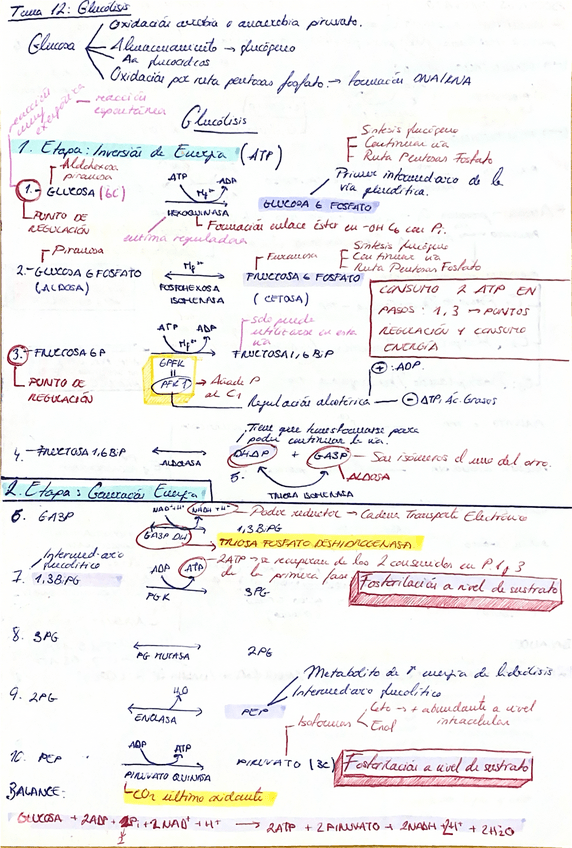 Tema 12: Glucólisis
Glucosa
Oxidación aerobia o anaerobia piruvato.
Almacenamiento → glucógeno
Aa glucocídicos
Oxidación por ruta pentosas fosfato → formación DNA/RNA
reacción muy exergónica
reacción espontánea
Glucólisis
1. Etapa: Inversión de Energía (ATP)
Síntesis glucógeno
Continuar vía
Ruta Pentosas Fosfato
Aldohexosa
piranosa
Primer intermediario de la
vía glucolítica.
1.- GLUCOSA (6C)
ATP ADP
Mg2+
HEXOQUINASA
GLUCOSA 6 FOSFATO
PUNTO DE
REGULACIÓN
Formación enlace éster en -OH C6 con Pi.
enzima reguladora
Piranosa
Furanosa
Síntesis glucógeno
Continuar vía
Ruta Pentosas Fosfato
2.- GLUCOSA 6 FOSFATO
(ALDOSA)
Mg2+
FOSFOHEXOSA
ISOMERASA
FRUCTOSA 6 FOSFATO
(CETOSA)
CONSUMO 2 ATP EN
PASOS: 1, 3 → PUNTOS
REGULACIÓN Y CONSUMO
ENERGÍA
solo puede
utilizarse en esta
vía
3.- FRUCTOSA 6P
ATP ADP
Mg2+
FRUCTOSA 1,6 BiP
PUNTO DE
REGULACIÓN
6PFK
=
PFK 1
Añade P
al C1
Regulación alostérica
+ : ADP.
- ATP, Ac. Grasos
Tiene que transformarse para
poder continuar la vía.
4. FRUCTOSA 1,6 BiP
ALDOLASA
DHAP + GA3P
Son isómeros el uno del otro.
ALDOSA
5.
TRIOSA ISOMERASA
2. Etapa: Generación Energía
6 GA3P
NAD+ + Pi NADH + H+
Poder reductor → Cadena Transporte Electrónico
1,3BiPG
GA3P DH
TRIOSA FOSFATO DESHIDROGENASA.
Intermediario
glucolítico
7. 1,3BiPG
ADP ATP
PGK
3PG
2ATP → se recuperan de los 2 consumidos en P 1 y 3
de la primera fase
Fosforilación a nivel de sustrato
8. 3PG
PG MUTASA
2PG
9. 2PG
H2O
ENOLASA
PEP
Metabolito de ↑ energía de hidrólisis
Intermediario glucolítico
Isoformas
Ceto → + abundante a nivel
intracelular
Enol
10. PEP
ADP ATP
PIRUVATO QUINASA
PIRUVATO (3C)
Fosforilación a nivel de sustrato
BALANCE:
CO2 último oxidante
GLUCOSA + 2ADP + 2Pi + 2NAD+ + H+ → 2ATP + 2PIRUVATO + 2NADH + 2H+ + 2H2O